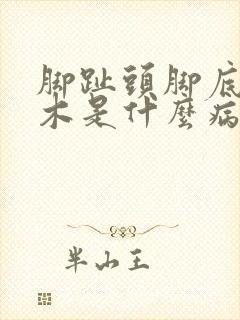 脚趾頭脚底
木是什麼病
半山王